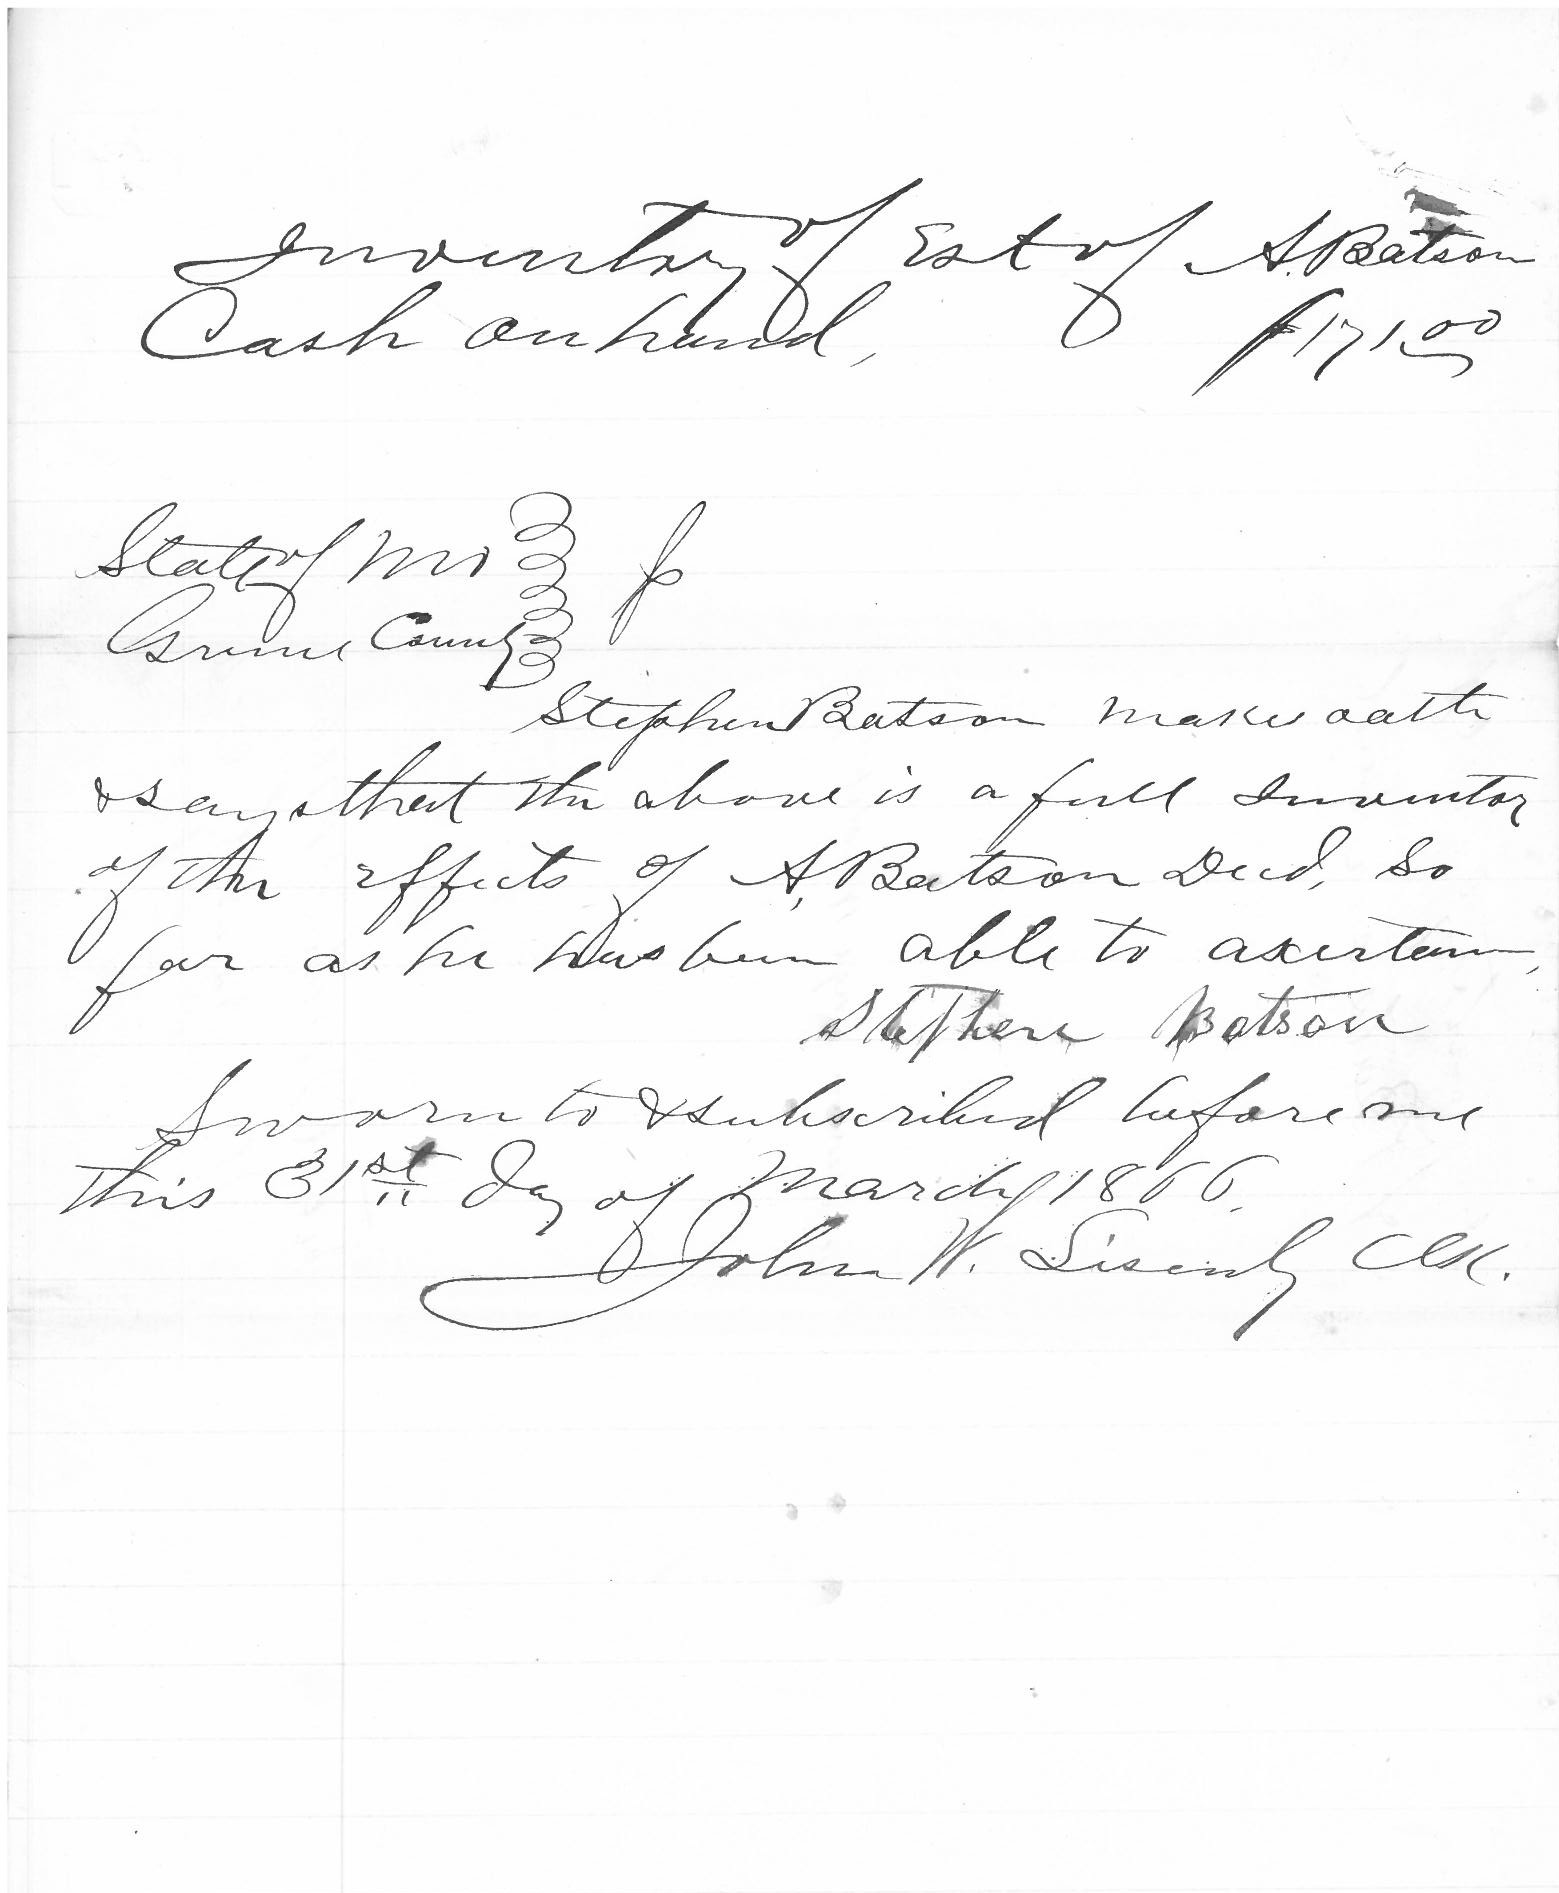 Inventory of Est of A. Batson
Cash on hand, $171.00
State of Mo
Greene County
Stephen Batson makes oath
& says that the above is a full Inventor
of the effects of A. Batson Decd, So
far as he has been able to asertain,
Stephen Batson
Sworn to & subscribed before me
this 31st Day of March 1866.
John W. Lisenby Clk.